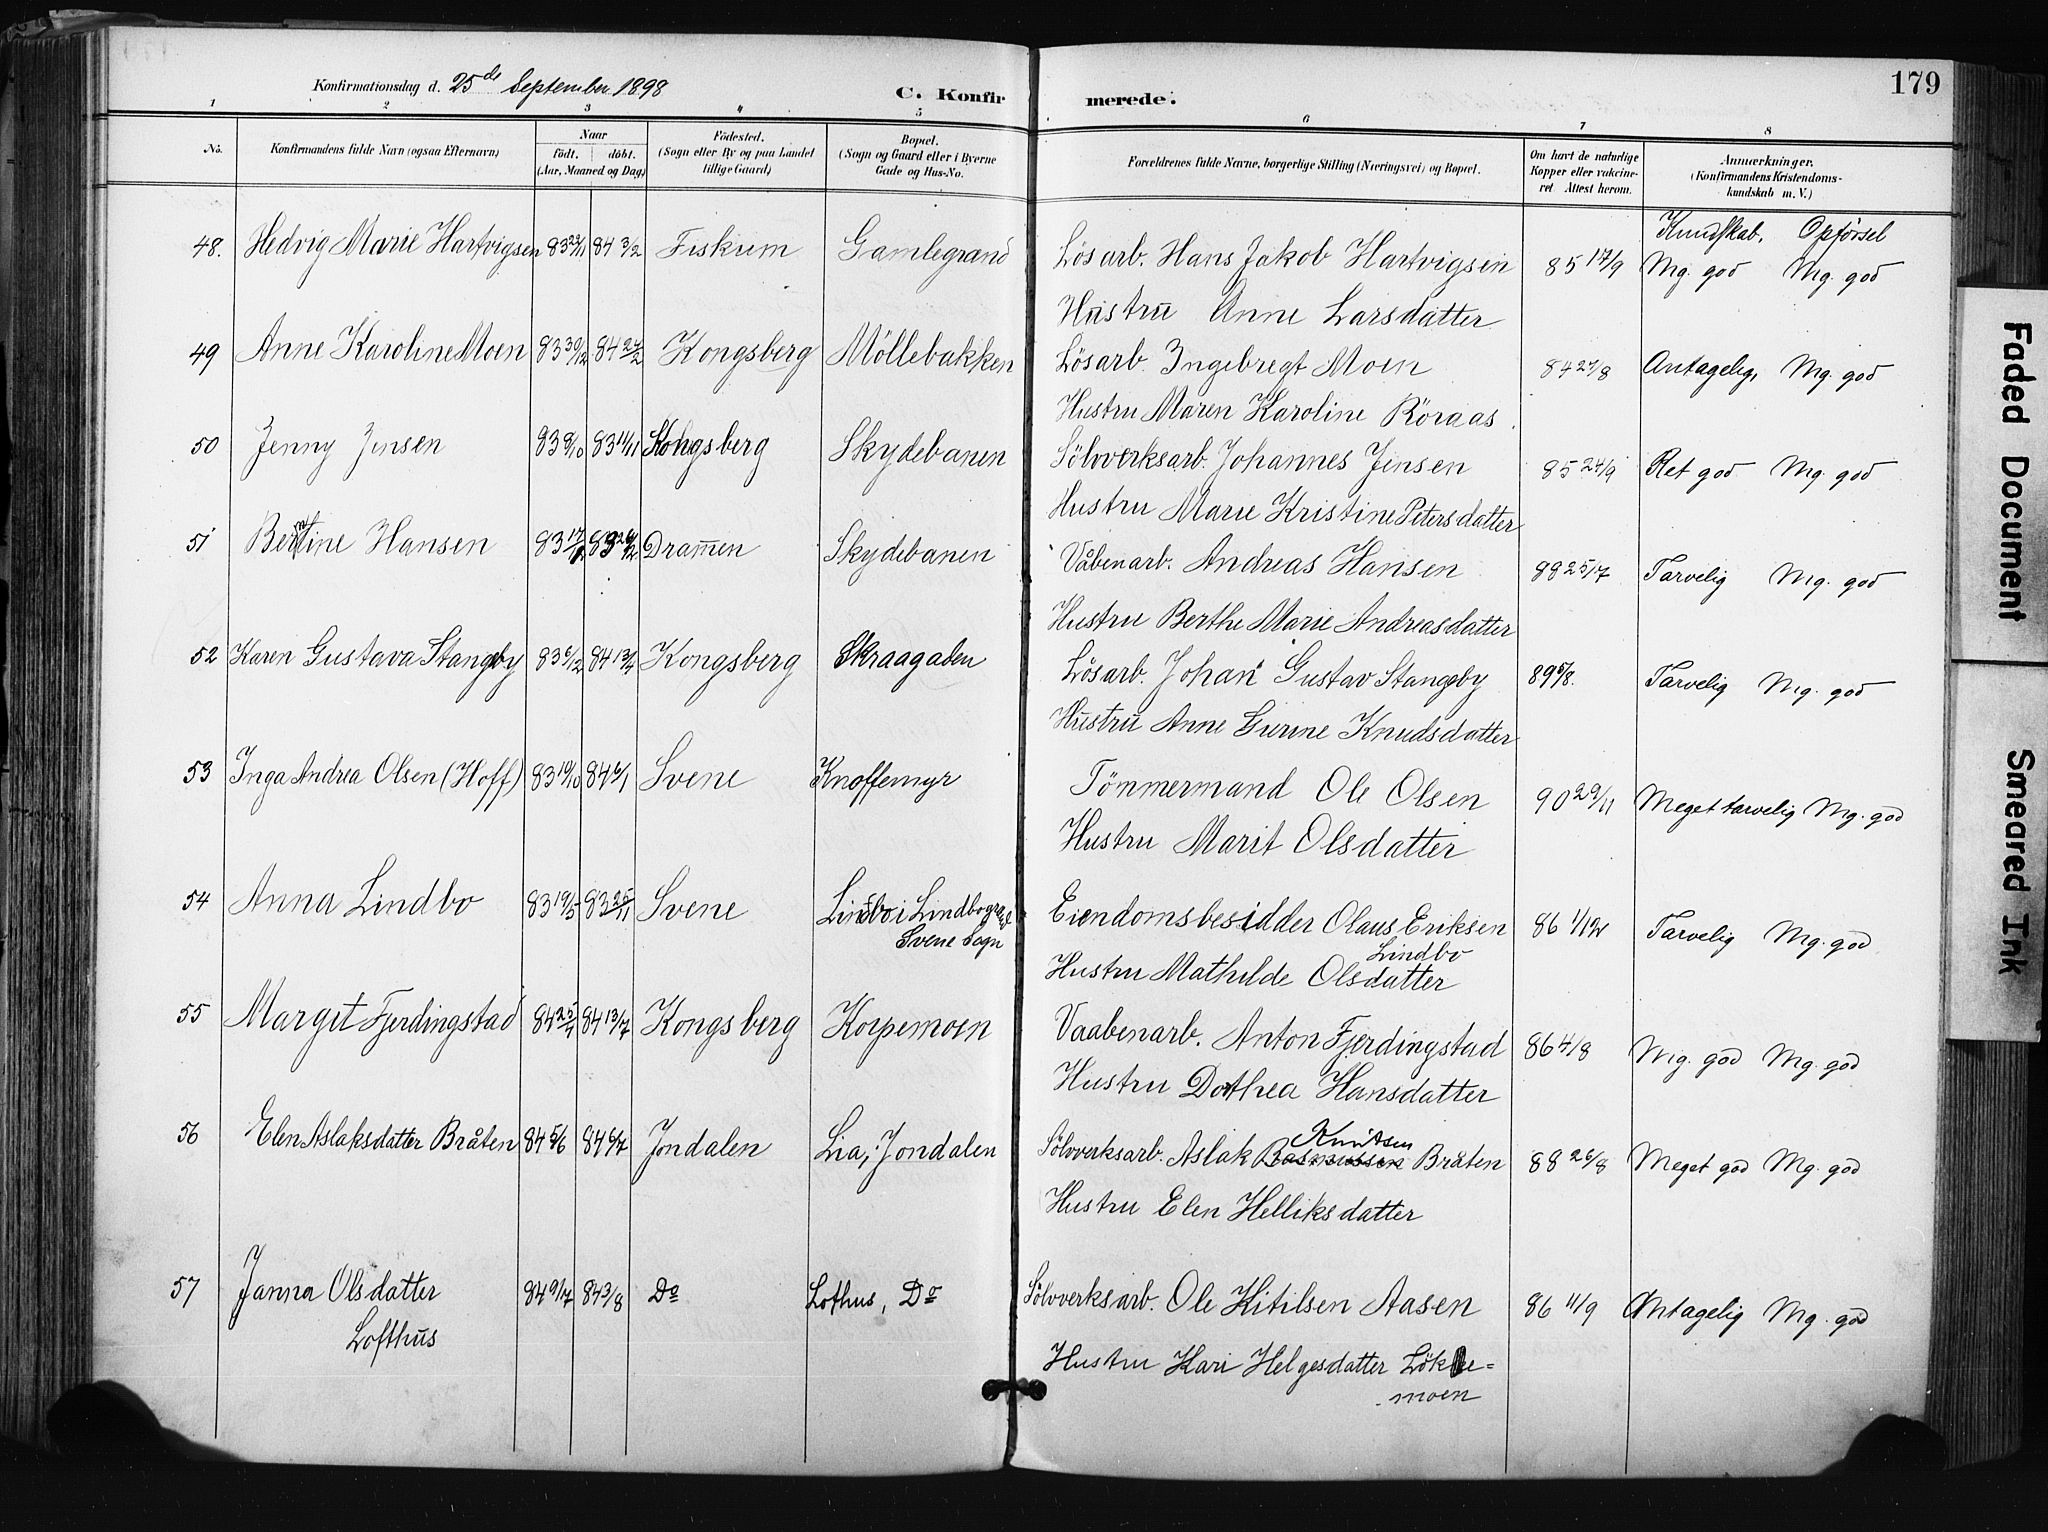 Konfirmationsdag d. 25de September 1898
C. Konfirmerede.
179
1 2 3 4 5 6 7 8
No. Konfirmandens fulde Navn (ogsaa Efternavn) Naar født. døbt. (Aar, Maaned og Dag) Fødested. (Sogn eller By og paa Landet tillige Gaard) Bopæl. (Sogn og Gaard eller i Byerne Gade og Hus-No. Forældrenes fulde Navne, borgerlige Stilling (Næringsvei) og Bopæl. Om havt de naturlige Kopper eller vaccineret Attest herom. Anmærkninger. (Konfirmandens Kristendomskundskab m. V.)
Kundskab. Opførsel
48. Hedvig Marie Hartvigsen 83 23/11 84 3/2 Fiskum Gamlegrand Lösarb. Hans Jakob Hartvigsen 85 17/9 Mg. god Mg. god
Hustru Anne Larsdatter
49 Anne Karoline Moen 83 30/12 84 24/2 Kongsberg Möllebakken Lösarb. Ingebregt Moen 84 27/8 Antagelig, Mg. god
Hustru Maren Karoline Röraas
50 Jenny Jensen 83 8/10 83 11/11 Kongsberg Skydebanen Sölvverksarb. Johannes Jensen 85 24/9 Ret god Mg. god
Hustru Marie Kristine Petersdatter
51 Berntine Hansen Drammen Skydebanen Våbenarb. Andreas Hansen 88 25/7 Tarvelig Mg. god
Hustru Berthe Marie Andreasdatter
52 Karen Gustava Stangeby 83 6/12 84 13/4 Kongsberg Skraagaden Lösarb. Johan Gustav Stangeby 89 5/8. Tarvelig Mg. god
Hustru Anne Gurine Knudsdatter
53 Inga Andrea Olsen (Hoff) 83 19/10 84 6/1 Svene Knoffemyr Tömmermand Ole Olsen 90 29/11 Meget tarvelig Mg. god
Hustru Marit Olsdatter
54 Anna Lindbo 83 19/5 83 25/11 Svene Lindbo i Lindbogrand Eiendomsbesidder Olaus Eriksen 86 1/12 Tarvelig Mg. god
Svene Sogn Lindbo
Hustru Mathilde Olsdatter
55 Margit Fjerdingstad 84 25/4 84 13/7 Kongsberg Korpemoen Vaabenarb. Anton Fjerdingstad 86 4/8 Mg. god Mg. god
Hustru Dorthea Hansdatter
56 Elen Aslaksdatter Bråten 84 5/6 84 6/7 Jondalen Lia, Jondalen Sölvverksarb. Aslak Rasmussen Knutsen Bråten 88 26/8 Meget god Mg. god
Hustru Elen Helliksdatter
57 Janna Olsdatter 84 9/7 84 3/8 Do Lothus, Do Sölvverksarb. Ole Kitilsen Aasen 86 11/9 Antagelig Mg. god
Lofthus
Hustru Kari Helgesdatter Lökke-
moen
Faded Document
Smeared Ink